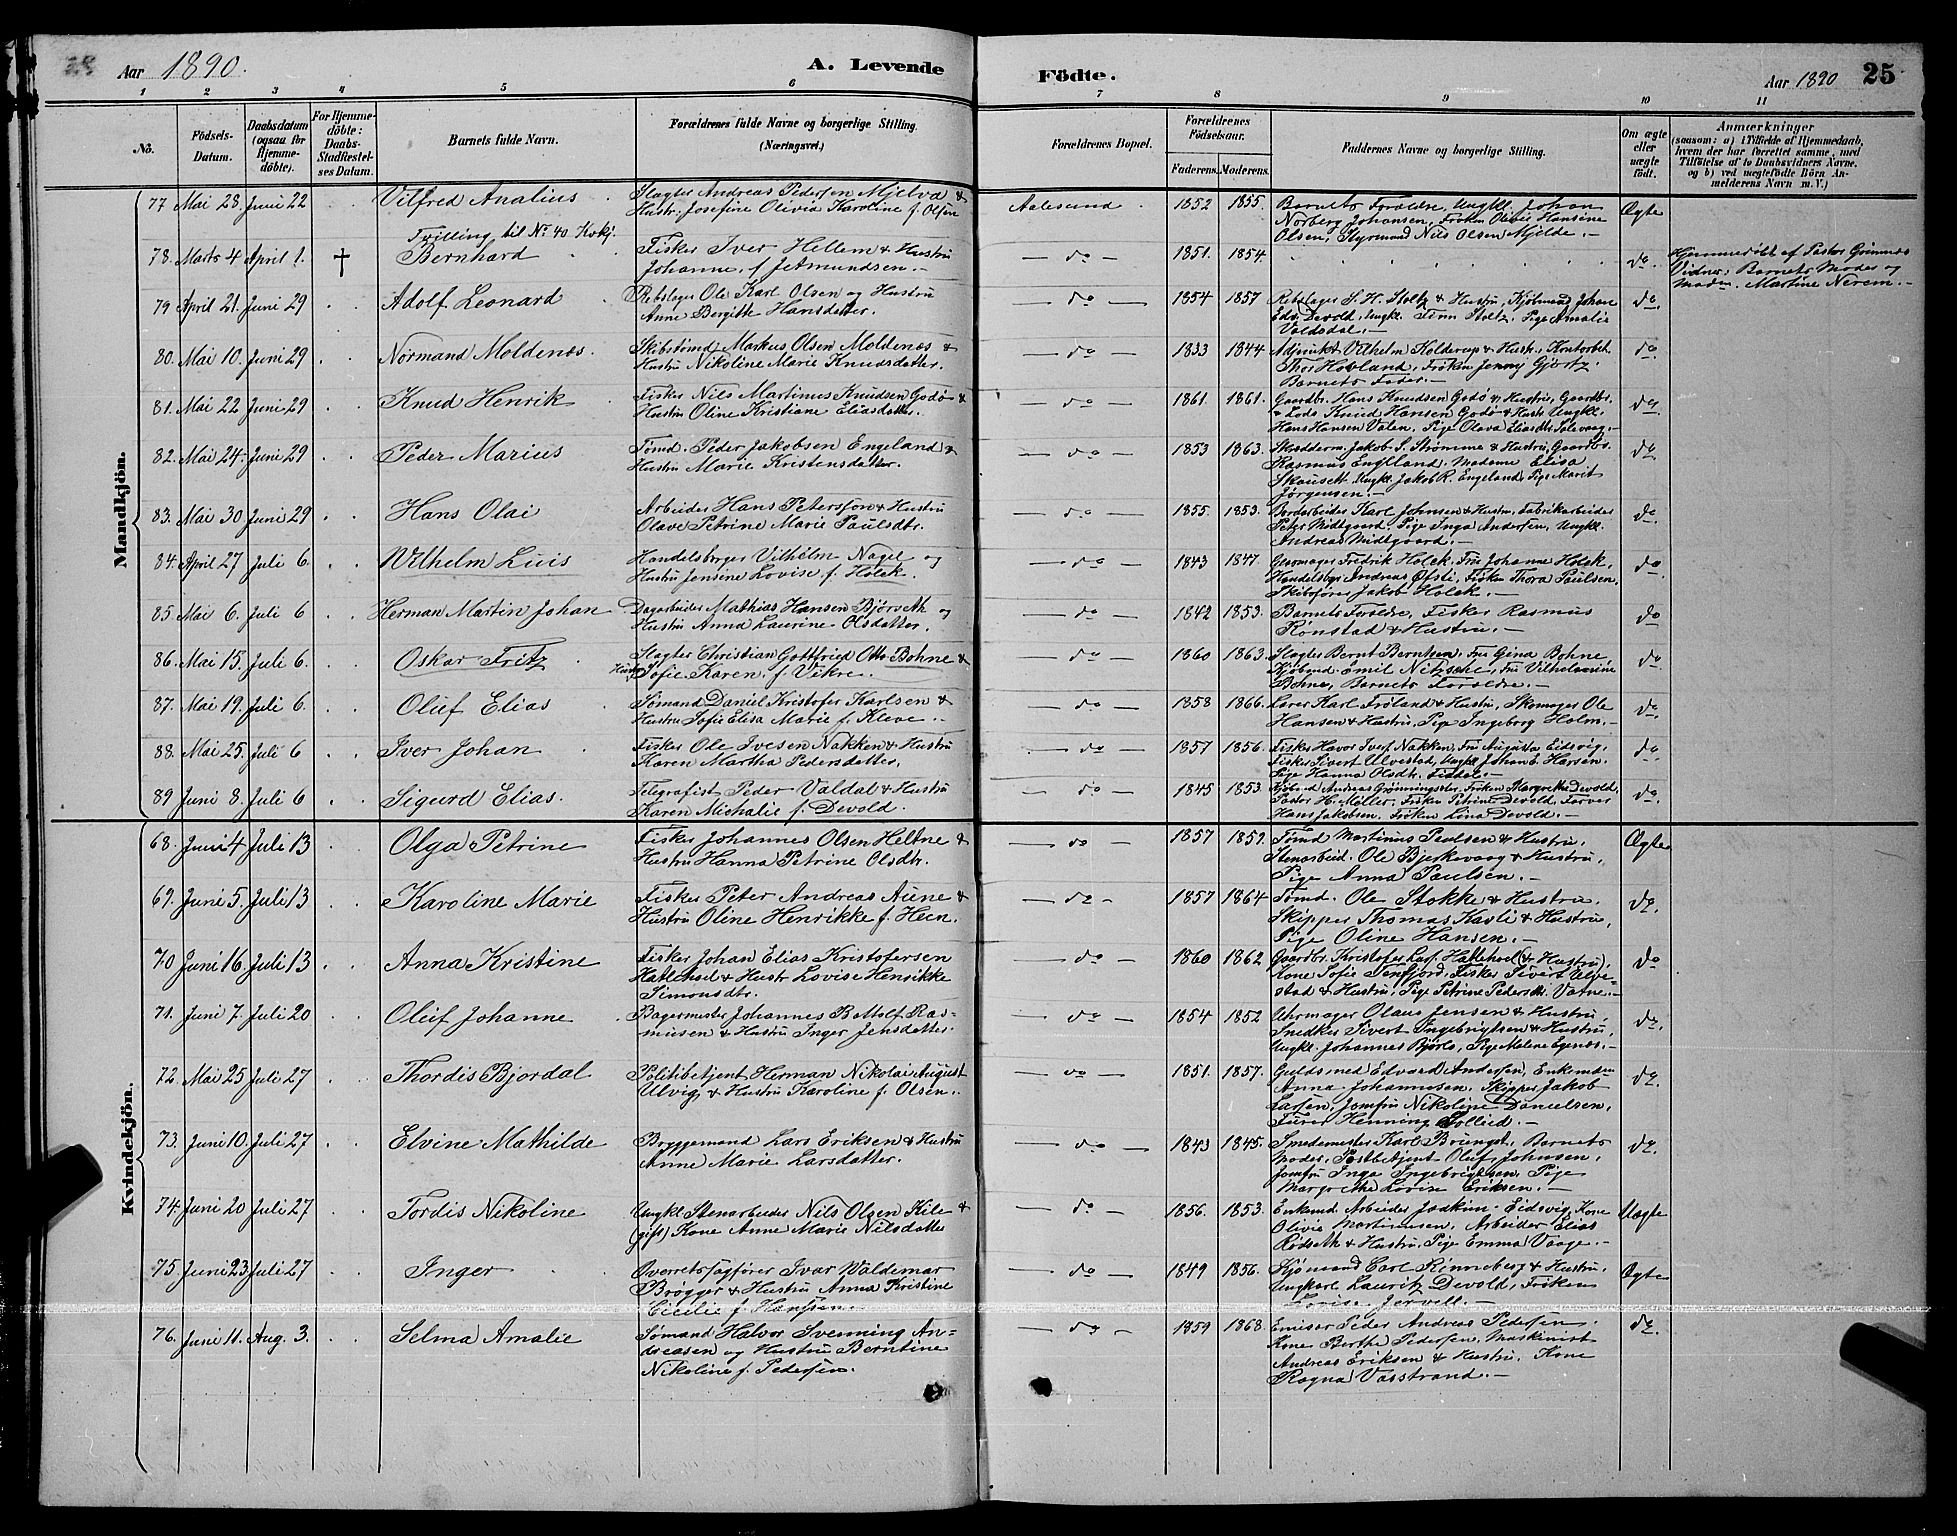 Aar 1890.
A. Levende
Födte.
Aar 1890
25
1 2 3 4 5 6 7 8 9 10 11
No.
Födsels-Datum.
Daabsdatum (ogsaa for Hjemme-döbte).
For Hjemme-döbte: Daabs-Stadfæstel-ses Datum.
Barnets fulde Navn.
Forældrenes fulde Navne og borgerlige Stilling. (Næringsvei.)
Forældrenes Bopæl.
Forældrenes Födselsaar.
Faderens. Moderens.
Faddernes Navne og borgerlige Stilling.
Om ægte eller uægte födt.
Anmærkninger
(saasom: a) i Tilfælde af Hjemmedaab, hvem der har forrettet samme, med Tilföielse af to Daabsvidners Navne. og b) ved uægtefödte Börn Anmelderens Navn m. V.)
Mandkjön.
77 Mai 28. Juni 22 Vilfred Analius Slagter Andreas Pedersen Mjelva &
Hustr. Josefine Olivia Karoline f. Olsen
Aalesund 1852 1855. Barnets Foræ̈ldre, Ungkl. Johan
Norberg Johansen, Frøken Olivie Hansine
Olsen, Styrmand Nils Olsen Mjelde. Ægte
Tvilling til No 40 Kvkj.
78. Marts 4 April 1. † Bernhard Fisker Iver Hellem & Hustru
Johanne f. Jetmundsen.
do 1851. 1854. do.
Hjemmedøbt af Pastor Grimnes
Vidner: Barnets Moder og
Madm. Martine Nerem.
79 April 21. Juni 29 Adolf Leonard Rebslager Ole Karl Olsen og Hustru
Anne Bergitte Hansdatter.
do 1854 1857 Rebslager S. H. Stoltz & Hustru, Kjøbmand Johan
Edv. Devold, Ungkl. Finn Stoltz, Pige Amalie
Valdsdal. do
80. Mai 10. Juni 29 Normand Moldenæs. Skibstømd Markus Olsen Moldenæs &
Hustru Nikoline Marie Knudsdatter.
do 1833 1844 Adjunkt Vilhelm Kolderup & Hustr., Kontorbet.
Thor Hovland, Frøken Jenny Gjørtz.
Barnets Fader. do
81. Mai 22 Juni 29 Knud Henrik Fisker Nils Martinus Knudsen Godø &
Hustru Oline Kristiane Eliasdatter.
do 1861. 1861. Gaardbr. Hans Knudsen Godø & Hustru, Gaardbr.
& Lods Knud Hansen Godø & Hustr. Ungkl.
Hans Hansen Valen, Pige Olava Eliasdtr. do
82. Mai 24. Juni 29 Peder Marius Tømd. Peder Jakobsen Engeland &
Hustru Marie Kristensdatter.
do 1853 1863. Skrædderm. Jakob S. Strømme & Hustru, Gaardbr.
Rasmus Engeland, Madame Elisa
Ungkl. Jakob R. Engeland, Pige Marit
Jørgensen. do
83. Mai 30 Juni 29 Hans Olai Arbeider Hans Petersson & Hustru
Olave Petrine Marie Paulsdtr.
do 1855. 1853. Karl Johnsen & Hustru, Fabrikarbeider
Peter Midtgaard, Pige Inga Andersen, Ungkl.
Andreas Midtgaard. do
84. April 27 Juli 6. Wilhelm Luis Handelsborger Vilhelm Nagel og
Hustru Jensine Lovise f. Holck.
do 1843 1847. Fredrik Holck, Fru Johanne Holck,
Handelsbgr. Andreas Øfsti, Frøken Thora Paulsen,
Skibsfører Jakob Holck. do
85. Mai 6. Juli 6 Herman Martin Johan Dagarbeider Mathias Hansen Bjørseth og
Hustru Anna Laurine Olsdatter.
do 1842 1853. Barnets Forældre, Fisker Rasmus
Rønstad & Hustru. do
86. Mai 15. Juli 6. Oskar Fritz Slagter Christian Gottfried Otto Bohne &
Hustru Sofie Karen f. Vikre.
do 1860 1863. Slagter Bernt Berntsen, Fru Gina Bohne
Kjøbmd. Emil Nitzsche, Fru Vilhelmine
Bohne, Barnets Forældre. do
87. Mai 19. Juli 6. Oluf Elias Sømand Daniel Kristofer Karlsen &
Hustru Sofie Elisa Marie f. Kleve.
do 1858 1866. Lærer Karl Frøland & Hustru, Skomager Ole
Hansen & Hustru, Pige Ingeborg Holm. do
88. Mai 25. Juli 6 Iver Johan Fisker Ole Ivesen Nakken & Hustru
Karen Martha Pedersdatter.
do 1857 1856. Fisker Havor Ivers. Nakken, Fru Augusta Eidsvig,
Fisker Sivert Ulvestad, Ungkl. Johan B. Hansen.
Pige Hanna Olsdtr. do
89 Juni 8. Juli 6 Sigurd Elias. Telegrafist Peder Valdal & Hustru
Karen Michalie f. Devold.
do 1845 1853. Kjøbmd. Andreas Grønningsæter, Frøken Margrethe Devold,
Pastor H. Møller, Frøken Petrine Devold, Farver
Hans Jakobsen, Frøken Lina Devold. do.
Kvindekjön.
68. Juni 4 Juli 13 Olga Petrine Fisker Johannes Olsen Heltne &
Hustru Hanna Petrine Olsdtr.
do 1857 1859. Tømd Martinus Paulsen & Hustru,
Stenarbeid. Ole Bjerkevaag & Hustru,
Pige Anna Paulsen. Ægte
69. Juni 5. Juli 13 Karoline Marie Fisker Peter Andreas Aune &
Hustru Oline Henrikke f. Heen.
do 1857 1864 Tømd. Ole Stokke & Hustru,
Skipper Thomas Kavli & Hustru,
Pige Oline Hansen. do.
70 Juni 16. Juli 13 Anna Kristine Fisker Johan Elias Kristofersen
Hatlehoel & Hustr. Lovise Henrikke
Simonsdtr.
do 1860 1862 Gaardbr. Kristofer Hatlehoel (& Hustru),
Kone Sofie Tenfjord, Fisker Sivert Ulve-
stad & Hustru, Pige Petrine Pedersdtr. Vatne. do
71. Juni 7. Juli 20 Oluf Johanne Bagermester Johannes B. Ras-
musen & Hustru Inger Jensdatter.
do 1854 1852 Uhrmager Olaus Jensen & Hustru,
Snedker Sivert Ingebrigtsen & Hustru,
Ungkl. Johannes Bjørlo, Pige Malene Egenæs. do.
72. Mai 25 Juli 27 Thordis Bjordal Politibetjent Herman Nikolai August
Ulvig & Hustru Karoline f. Olsen.
do 1851. 1857. Guldsmed Edvard Andersen, Enkemdm
Anna Johannesen, Skipper Jakob
Larsen, Jomfru Nikoline Danielsen,
Furer Henning Sollied. do.
73. Juni 10. Juli 27 Elvine Mathilde Bryggemand Lars Eriksen & Hustru
Anne Marie Larsdatter.
do 1843 1845. Smedemester Karl Bringst, Barnets
Moder, Postbetjent Oluf Johnsen,
Jomfru Inga Ingebrigtsen, Pige
Margrethe Lovise Eriksen. do.
74. Juni 20 Juli 27 Tordis Nikoline Ungkl. Stenarbeider Nils Olsen Kile &
(gift) Kone Anne Marie Nilsdatter
do 1856. 1853. Enkemd. Arbeider Joakim Eidsvig, Kone
Olivie Martinusen, Arbeider Elias
Rødseth & Hustru, Pige Emma Vaage. Uægte
75. Juni 23. Juli 27 Inger Overretssagfører Ivar Valdemar
Brøgger & Hustru Anna Kristine
Cicilie f. Hanssen.
do 1849 1856. Kjømand Carl Rønneberg & Hustru,
Ungkarl Lauritz Devold, Frøken
Lovise Jervell. Ægte
76. Juni 11. Aug. 3. Selma Amalie Sømand Halvor Svenning An-
dreasen og Hustru Berntine
Nikoline f. Pedersen.
do 1859 1868. Emisær Peder Andreas Pedersen.
Kone Berthe Pedersen, Maskinist
Andreas Eriksen & Hustru, Kone
Ragna Vasstrand. do.